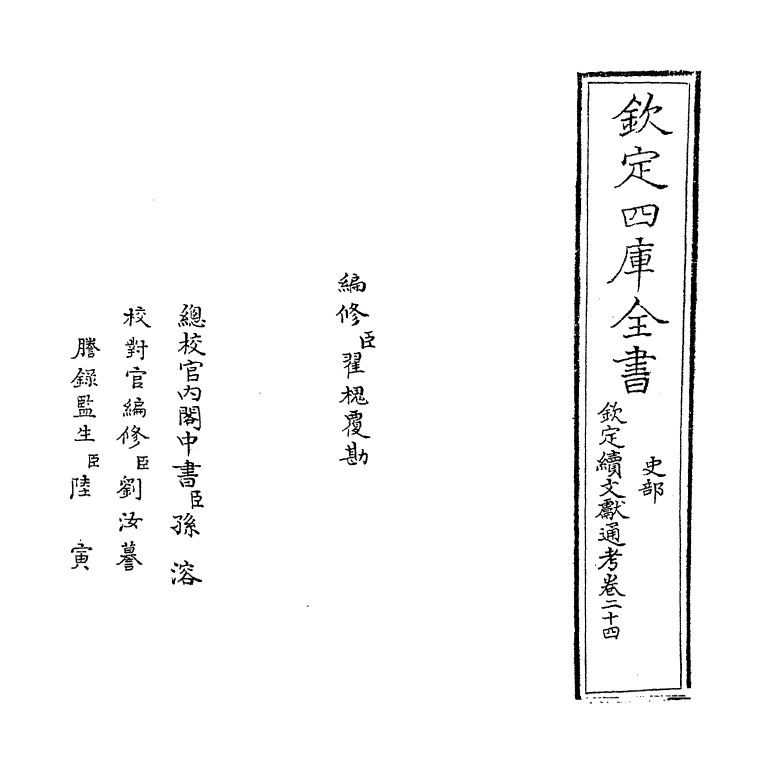 欽定四庫全書
史部
欽定續文獻通考卷二十四
編修臣翟槐覆勘
總校官內閣中書臣孫溶
校對官編修臣劉汝謩
謄錄監生臣陸寅